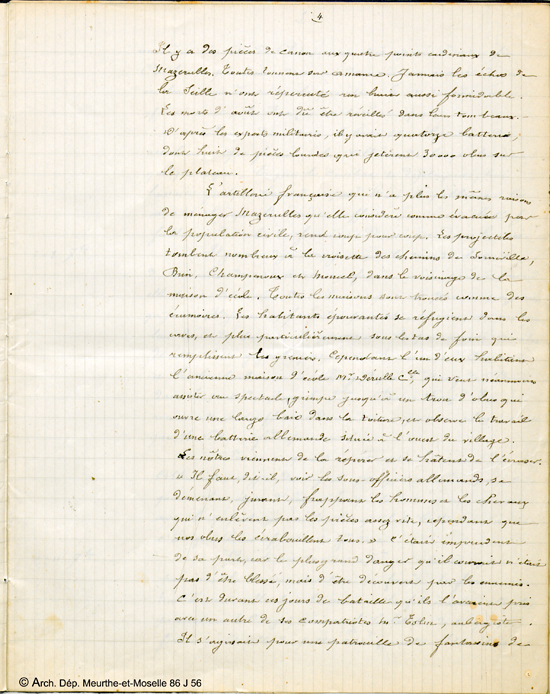 4
Il y a des pièces de canon aux quatre points cardinaux de
Mazerulles. Toutes tonnent sur Amance. Jamais les échos de
la Seille n'ont répercuté un bruit aussi formidable.
Les morts d'août ont dû être réveillés dans leurs tombeaux.
D'après les experts militaires, il y avait quatorze batteries,
dont huit de pièces lourdes qui jetèrent 30000 obus sur
le plateau.
L'artillerie française qui n'a plus les mêmes raisons
de ménager Mazerulles qu'elle considère comme évacué par
la population civile, rend coup pour coup. Les projectiles
tombent nombreux à la croisette des chemins de Sornéville,
Brin, Champenoux et Moncel, dans le voisinage de la
maison d'école. Toutes les maisons sont trouées comme des
écumoires. Les habitants épouvantés se réfugient dans les
caves, et plus particulièrement sous les tas de foin qui
remplissent les greniers. Cependant l'un d'eux habitant
l'ancienne maison d'école Mr Celle qui veut néanmoins
assister au spectacle, grimpe jusqu'à un trou d'obus qui
ouvre une large baie dans la toiture, et observe le travail
d'une batterie allemande située à l'ouest du village.
Les nôtres viennent de la repérer et se hâtent de l'écraser.
« Il faut, dit-il, voir les sous-officiers allemands, se
démenant, jurant, frappant les hommes et les chevaux
qui n'enlèvent pas les pièces assez vite, cependant que
nos obus les écrabouillent tous. » C'était imprudent
de sa part, car le plus grand danger qu'il courait n'était
pas d'être blessé, mais d'être découvert par les ennemis.
C'est durant ces jours de bataille qu'ils l'avaient pris
avec un autre de ses compatriotes Mr, aubergiste.
Il s'agissait pour une patrouille de fantassins de
© Arch. Dép. Meurthe-et-Moselle 86 J 56